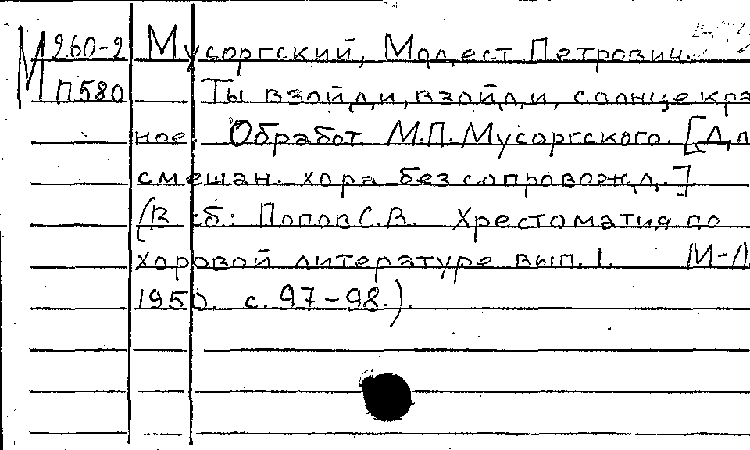 М 260-2 Мусоргский, Модест Петрович.
П580 Ты взойди, взойди, солнце крас
ное. Обработ М.П.Мусоргского. [Дл
смешан. хора без сопровожд.]
(В сб: Попов С.В. Хрестоматия по
хоровой литературе вып.1. М-Л
1950. с. 97-98.).